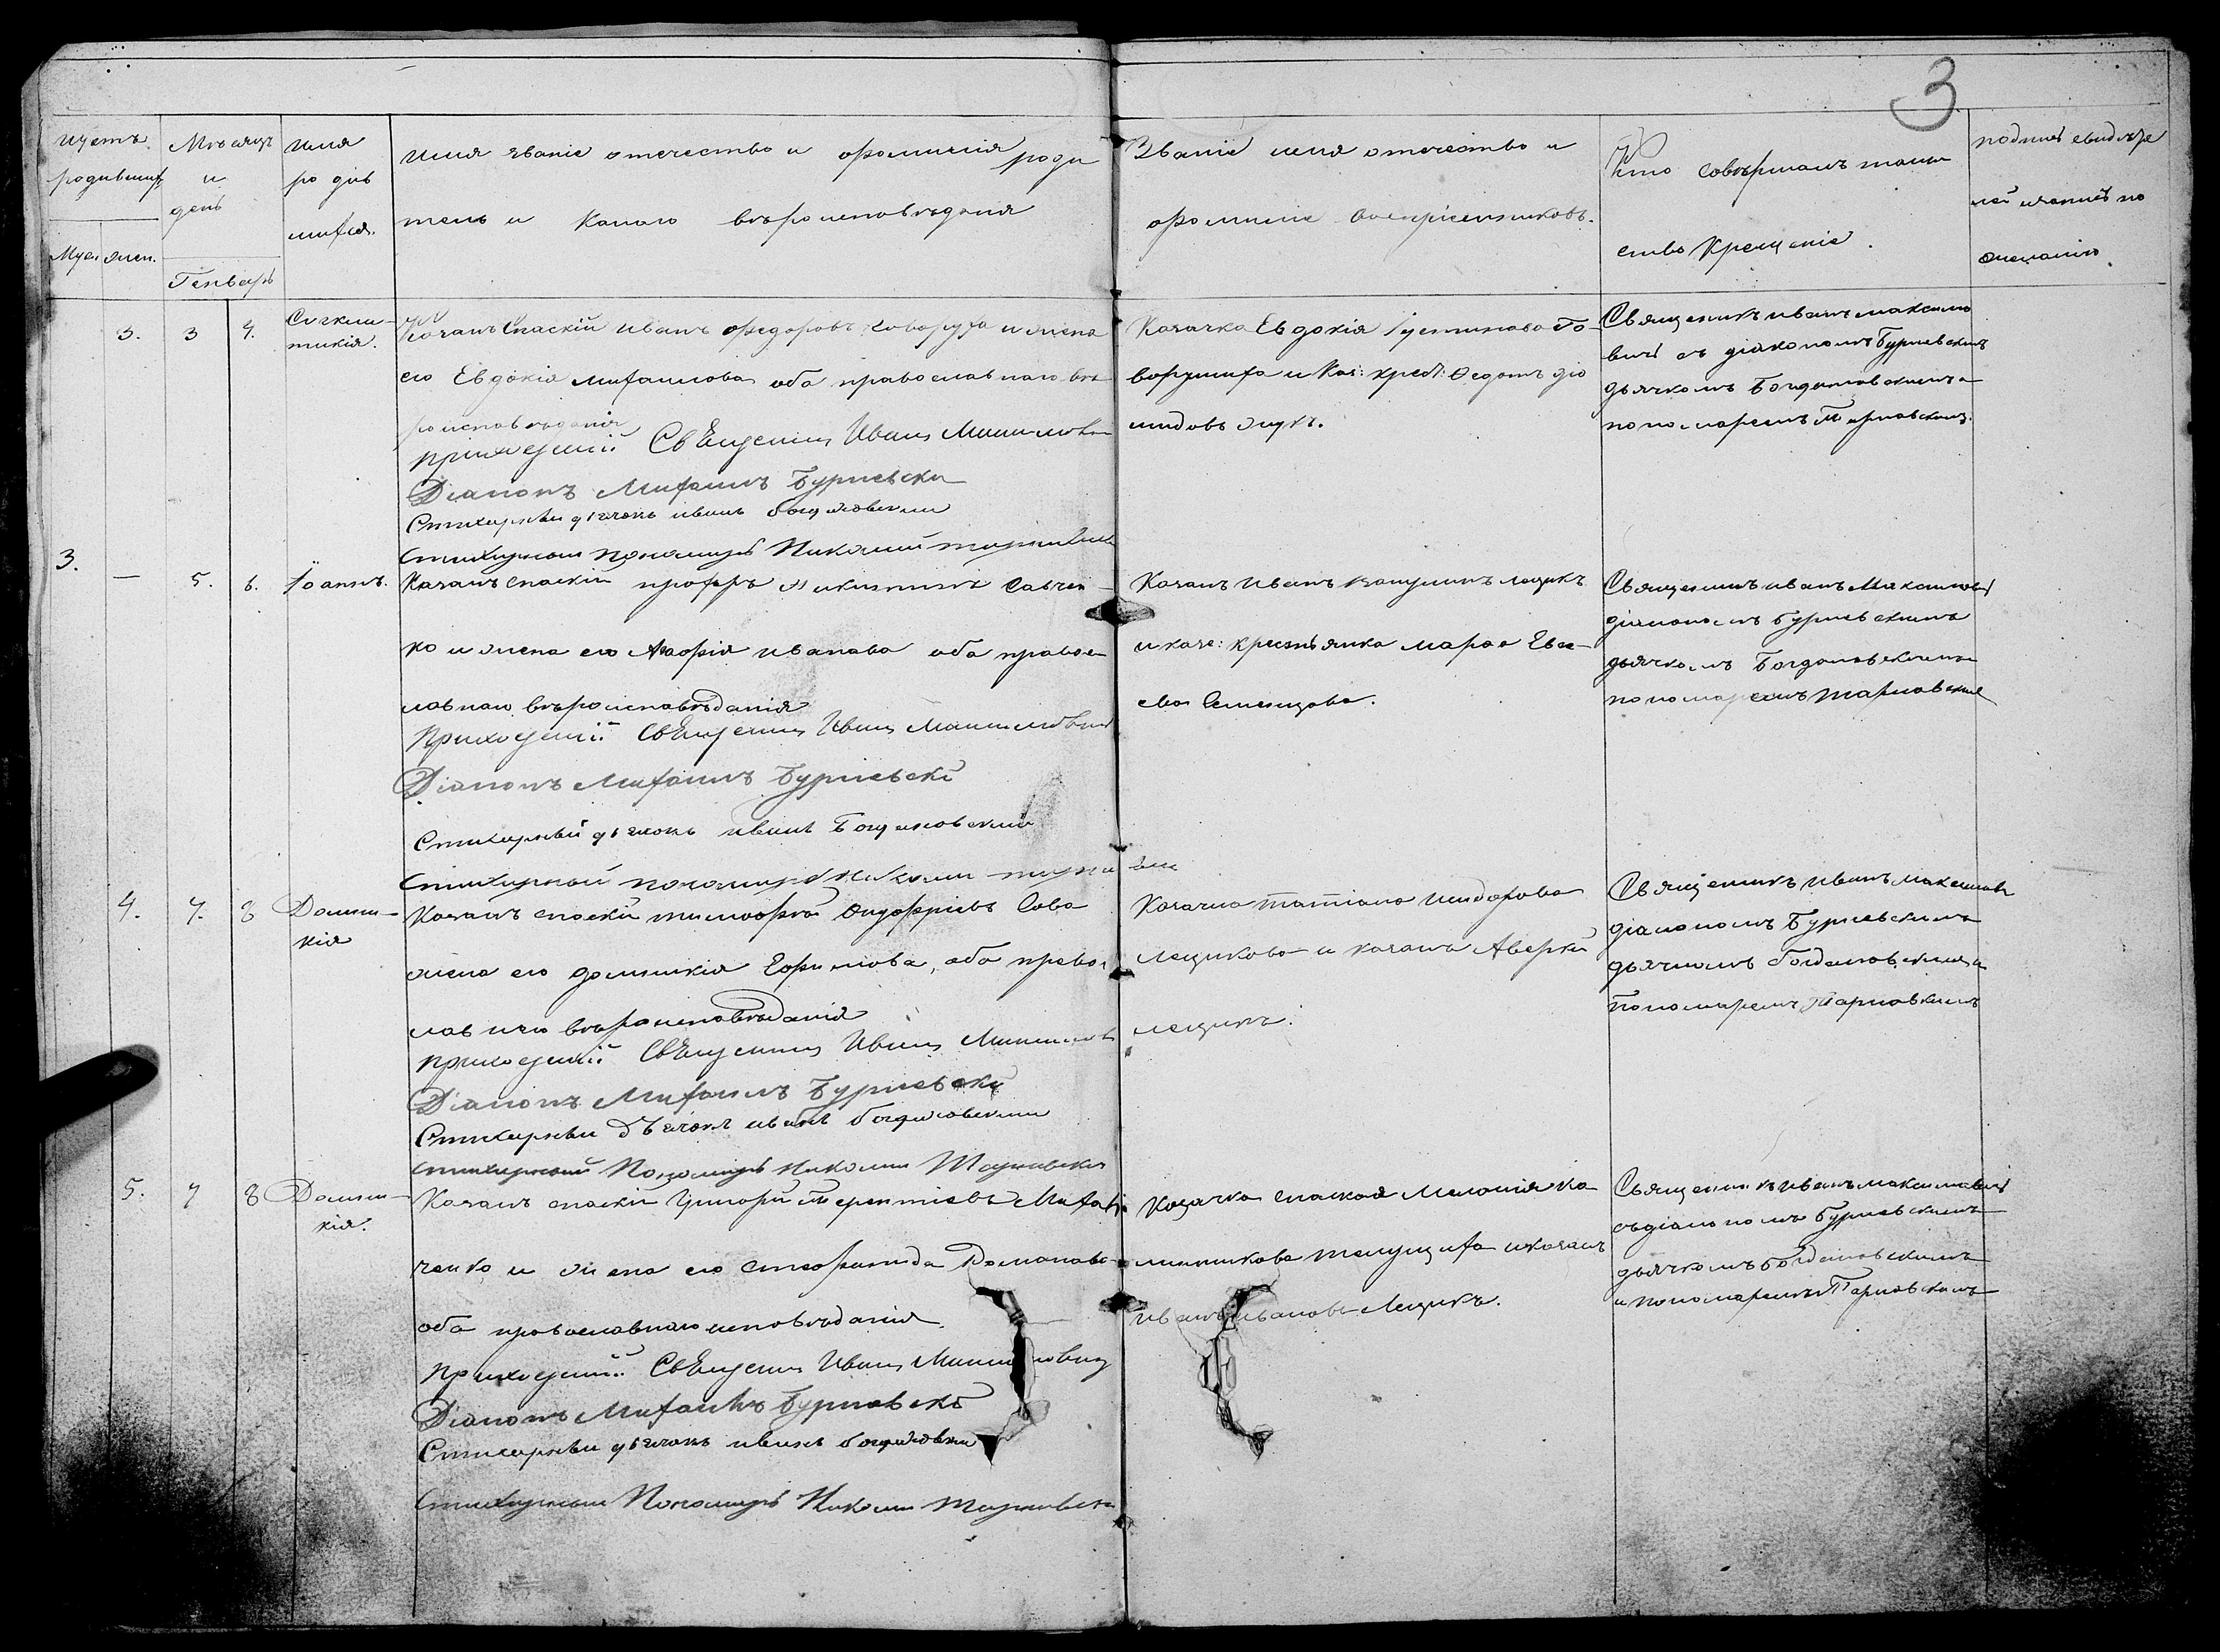 3
Щетъ родившихъ
Муж. Жен.
Мѣсяцъ и день
Генварь
имя родившихся.
имя званіе отечество и фамилія роди
тель и какого вѣроисповѣданія
Званіе имя отечество и
фамиліе воспріемниковъ.
Кто совѣршалъ таин
ство Крещеніе.
подпись свидѣте
лей
желанію.
3. 3 4.
Синкли-
тикія.
Козакъ Спаскій иванъ федоровъ и жена
его Евдокія михаилова оба православнаго вѣ
роисповѣданія
приходскій Священникъ Иванъ Максимович
Діаконъ Михаилъ Бурневски
Стихарный дьячокъ иванъ богдановски
Стихарный Пономарь Николай тарнавски
Козачка Евдокія Іустинова Го-
ворушиха и Каз: крест: Ѳедотъ дιο
мидовъ жукъ.
Священикъ иванъ максимо
вичъ съ діакономъ Бурневскимъ
дьячкомъ Богдановскимъ и
пономаремъ Тарнавскимъ.
3. — 5. 6. Іоаннъ.
Казакъ спаскій никитинъ Савчен-
ко и жена его Агафія иванова оба правос
лавнаго вѣроисповѣданія
Приходскій Священникъ Иванъ Максимович
Діаконъ Михаилъ Бурневскі
Стихарный дьячокъ иванъ Богдановскій
Стихарный пономарь Николай тарна
вски
Казакъ иванъ лещикъ
и казе: крестьянка марѳа Евсе-
ева Семенцова.
Священикъ иванъ Максимович
діакономъ бурневскимъ
дьячкомъ Богдановскимъ
пономаремъ тарнавским
4. 7. 8
Домни-
кія
Казакъ спаскій тимоѳей Онуфріевъ Сова
жена его домникія Ефимова, оба право
лавнаго вѣроисповѣданія
приходскій Священникъ Иванъ Максимов
Діаконъ Михаилъ Бурневскій
Стихарный дьячокъ иванъ богдановски
стихарный Пономарь Николай Тарнавски
Козачка татіана исидорова
лещикова и казакъ Аверкій
лещикъ.
Священикъ иванъ максимов
діакономъ Бурневскимъ
дьячкомъ богдановскимъ и
Пономаремъ Тарнавскимъ
5. 7 8
Домни-
кія.
Казакъ спаскій Григорій Терентіевъ Михай
ченко и жена его стефанида Романова
оба православнаго исповѣданія.
приходскій Священникъ Иванъ Максимовичъ
Діаконъ Михаилъ Бурневскі
Стихарный дьячокъ иванъ богдановски
Стихарный Пономарь Николай тарнавски
Козачка спаская Меланія Ка
линникова и казакъ
иванъ ивановъ Лещикъ.
Священикъ иванъ максимович
съ діакономъ Бурневскимъ
дьячкомъ богдановскимъ
и пономаремъ Тарнавскимъ